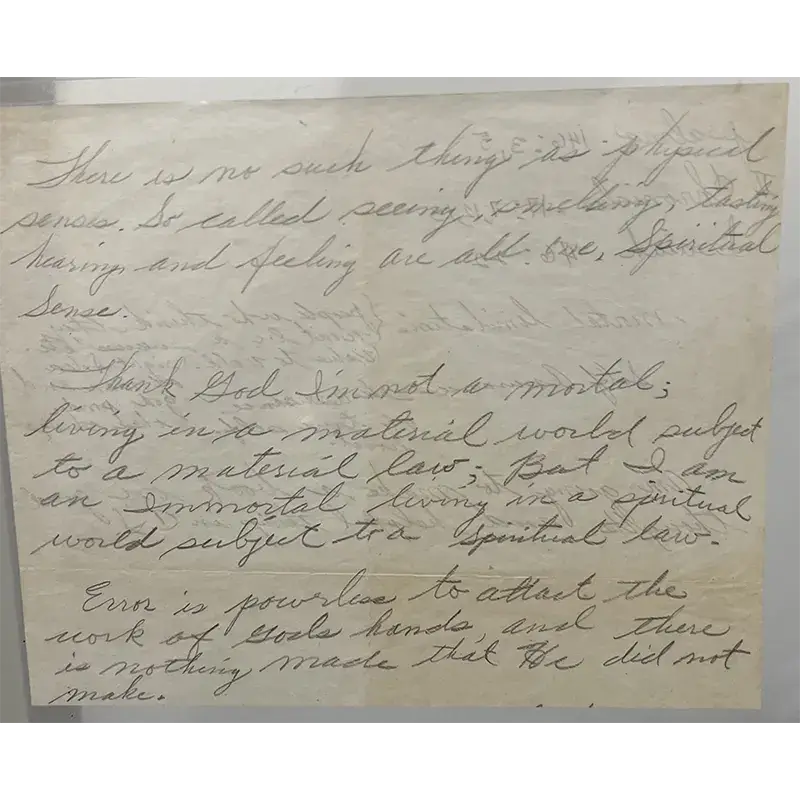 There is no such thing as physical
senses. So called seeing, smelling, tasting
hearing and feeling are all. i.e, Spiritual
Sense.
Thank God I'm not a mortal;
living in a material world subject
to a material law; But I am
an Immortal living in a spiritual
world subject to a spiritual law.
Error is powerless to attact the
work of Gods hands, and there
is nothing made that He did not
make.